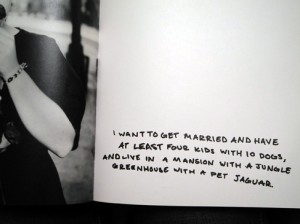 I WANT TO GET MARRIED AND HAVE
AT LEAST FOUR KIDS WITH 10 DOGS,
AND LIVE IN A MANSION WITH A JUNGLE
GREENHOUSE WITH A PET JAGUAR.